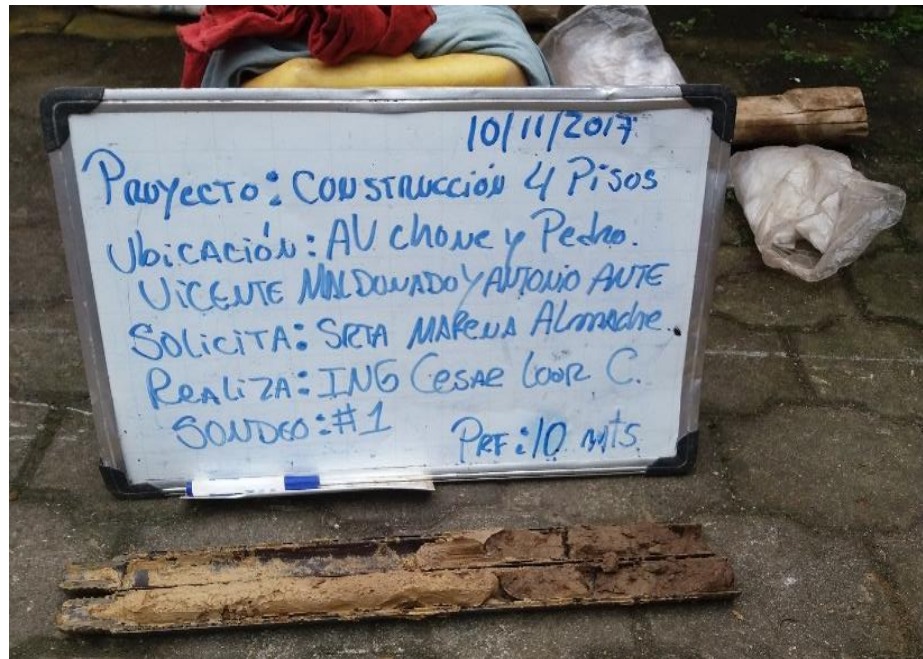 10/11/2017
PROYECTO: CONSTRUCCIÓN 4 PISOS
UBICACIÓN: AV CHONE Y PEDRO.
VICENTE MALDONADO Y ANTONIO ANTE
SOLICITA: SRTA MARENA ALMACHE
REALIZA: ING CESAR LOOR C.
SONDEO: #1 PRF: 10 mts